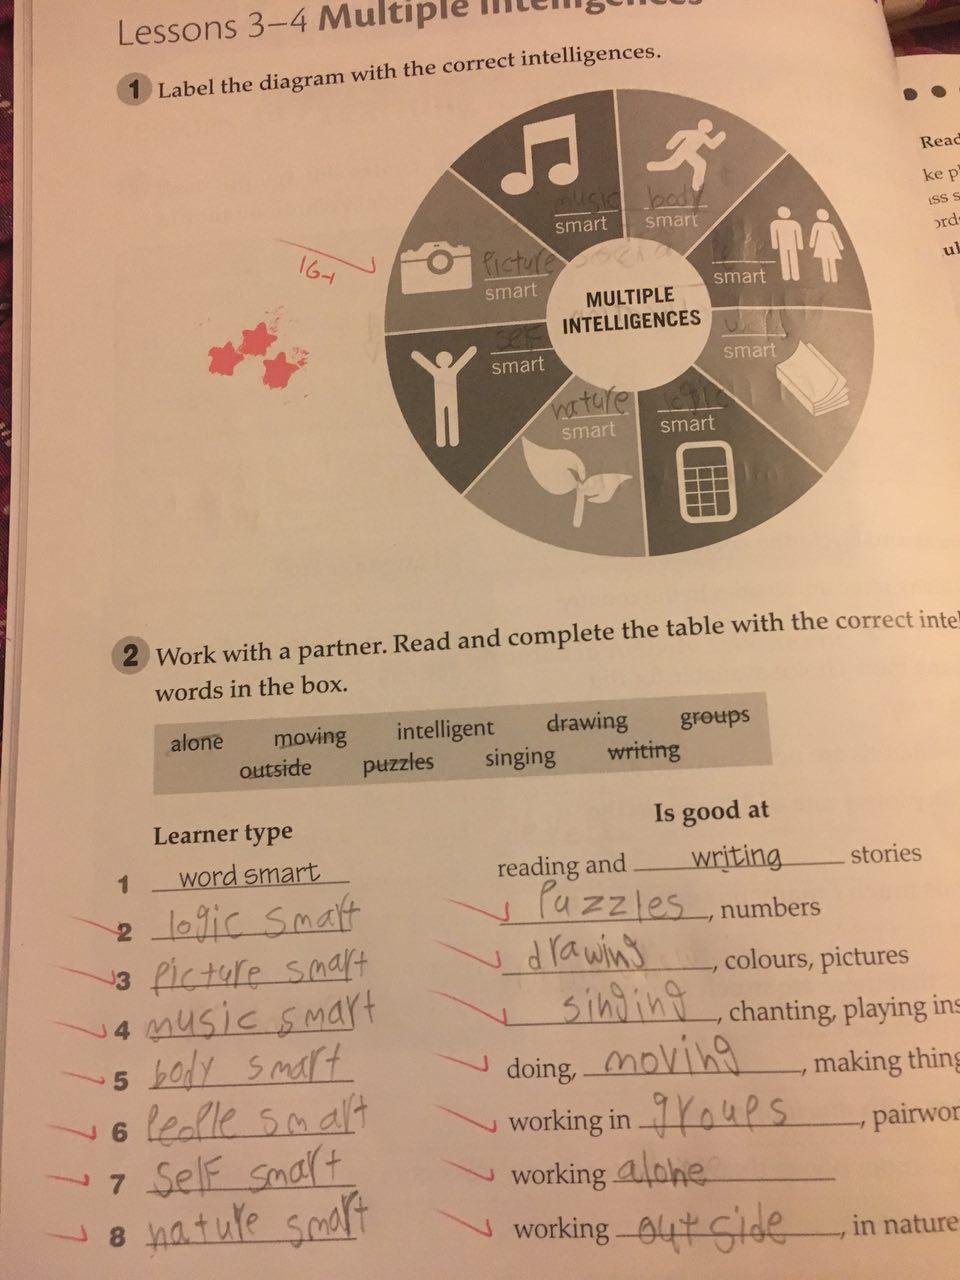 Lessons 3–4 Multiple Intelligences
1 Label the diagram with the correct intelligences.
music
smart
body
smart
smart
picture
smart
MULTIPLE
INTELLIGENCES
self
smart
smart
nature
smart
logic
smart
16
Read
ke p
ss s
ord
ul
2 Work with a partner. Read and complete the table with the correct inte
words in the box.
alone moving intelligent drawing groups
outside puzzles singing writing
Learner type Is good at
1 word smart reading and writing stories
2 logic smart Puzzles, numbers
3 picture smart drawing, colours, pictures
4 music smart singing, chanting, playing ins
5 body smart doing, moving, making thing
6 People smart working in groups, pairwor
7 Self smart working alone
8 nature smart working outside, in nature